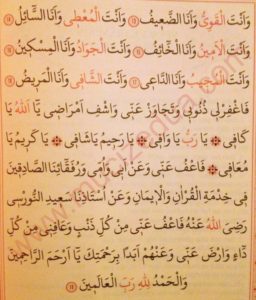 وَاَنْتَ الْقَوِىُّ وَاَنَا الضَّعِيفُ ﴿١٥﴾ وَاَنْتَ الْمُعْطِى وَاَنَا السَّائِلُ ﴿١٦﴾
وَاَنْتَ الْاَمِينُ وَاَنَا الْخَائِفُ وَاَنْتَ الْجَوَادُ وَاَنَا الْمِسْكِينُ
وَاَنْتَ الْمُجِيبُ وَاَنَا الدَّاعِى وَاَنْتَ الشَّافِى وَاَنَا الْمَرِيضُ
فَاغْفِرْلِى ذُنُوبِى وَتَجَاوَزْ عَنِّى وَاشْفِ اَمْرَاضِى يَا اَللّٰهُ يَا
كَافِى يَا رَبُّ يَا وَافِى يَا رَحِيمُ يَاشَافِى يَا كَرِيمُ يَا
مُعَافِى فَاعْفُ عَنِّى وَعَنْ اَبِى وَاُمِّى وَرُفَقَائِنَا الصَّادِقِينَ
فِى خِدْمَةِ الْقُرْاٰنِ وَالْاِيمَانِ وَعَنْ اُسْتَاذِنَا سَعِيدِ النُّورْسِى
رَضِىَ اللّٰهُ عَنْهُ فَاعْفُ عَنِّى مِنْ كُلِّ ذَنْبٍ وَعَافِنِى مِنْ كُلِّ
دَاءٍ وَارْضَ عَنِّى وَعَنْهُمْ اَبَدًا بِرَحْمَتِكَ يَا اَرْحَمَ الرَّاحِمِينَ
وَالْحَمْدُ لِلّٰهِ رَبِّ الْعَالَمِينَ